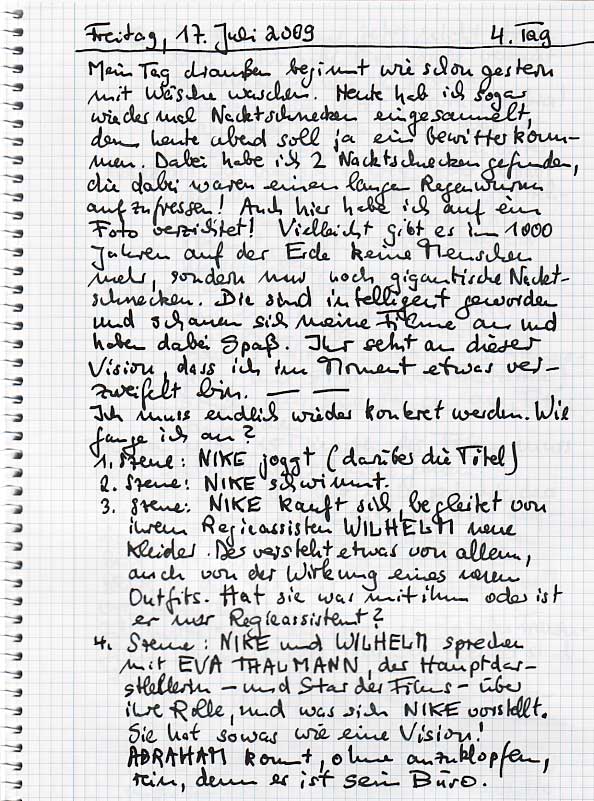 Freitag, 17. Juli 2009 4. Tag
Mein Tag draußen beginnt wie schon gestern
mit Wäsche waschen. Heute hab ich sogar
wieder mal Nacktschnecken eingesammelt,
denn heute abend soll ja ein Gewitter kom-
men. Dabei habe ich 2 Nacktschnecken gefunden,
die dabei waren einen langen Regenwurm
aufzufressen! Auch hier habe ich auf ein
Foto verzichtet! Vielleicht gibt es in 1000
Jahren auf der Erde keine Menschen
mehr, sondern nur noch gigantische Nackt-
schnecken. Die sind intelligent geworden
und schauen sich meine Filme an und
haben dabei Spaß. Ihr seht an dieser
Vision, dass ich im Moment etwas ver-
zweifelt bin. — —
Ich muss endlich wieder konkret werden. Wie
fange ich an?
1. Szene: NIKE joggt (darüber die Titel)
2. Szene: NIKE schwimmt.
3. Szene: NIKE kauft sich, begleitet von
ihrem Regieassisten WILHELM neue
Kleider. Der versteht etwas von allem,
auch von der Wirkung eines neuen
Outfits. Hat sie was mit ihm oder ist
er nur Regieassistent?
4. Szene: NIKE und WILHELM sprechen
mit EVA THALMANN, der Hauptdar-
stellerin – und Star des Films – über
ihre Rolle, und was sich NIKE vorstellt.
Sie hat sowas wie eine Vision!
ABRAHAM kommt, ohne anzuklopfen,
rein, denn es ist sein Büro.